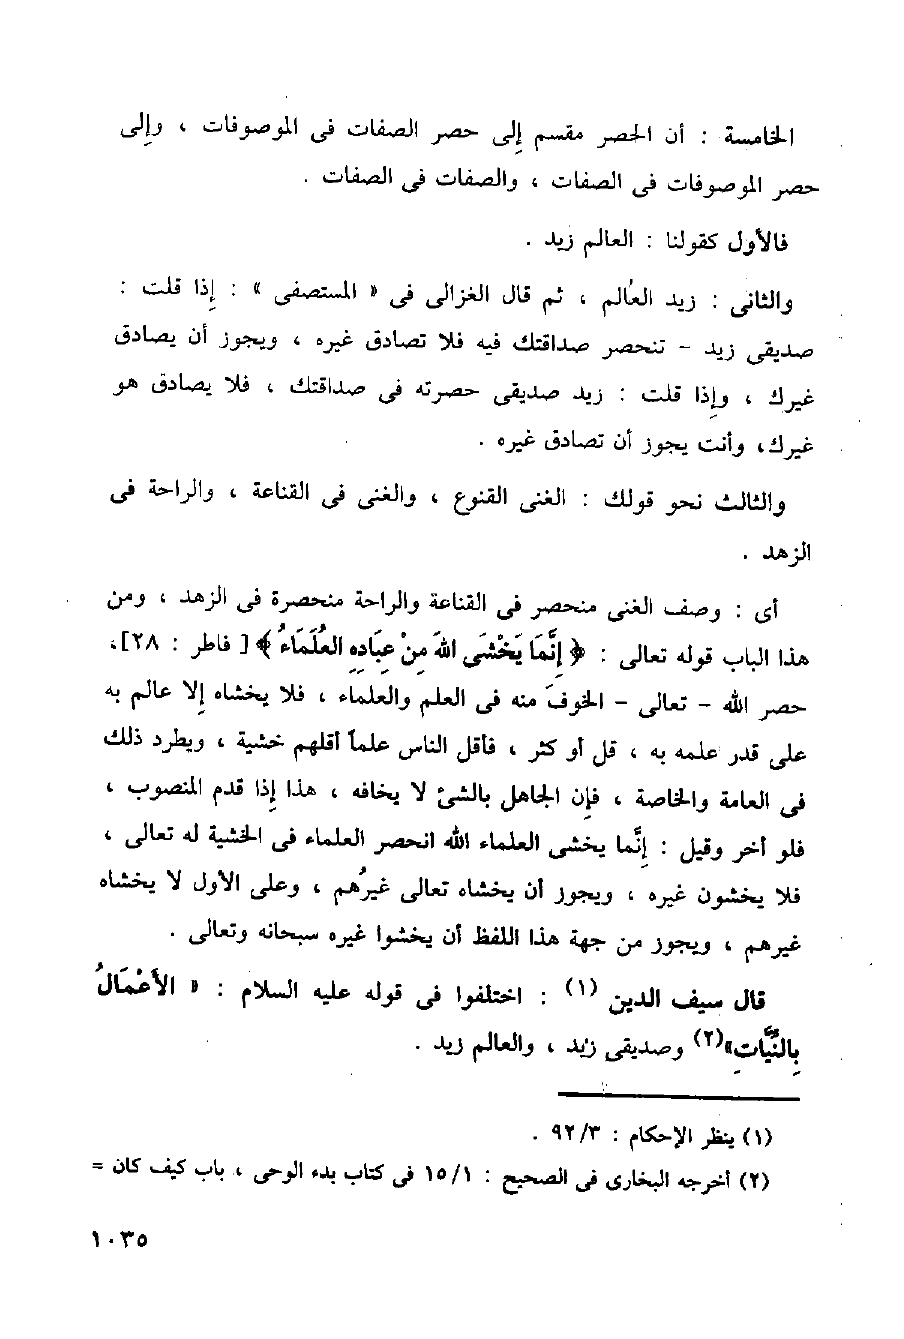 الخامسة : أن الحصر مقسم إلى حصر الصفات فى الموصوفات ، وإلى
حصر الموصوفات فى الصفات ، والصفات فى الصفات .
فالأول كقولنا : العالم زيد .
والثانى : زيد العالم ، ثم قال الغزالى فى « المستصفى » : إذا قلت :
صديقى زيد - تنحصر صداقتك فيه فلا تصادق غيره ، ويجوز أن يصادق
غيرك ، وإذا قلت : زيد صديقى حصرته فى صداقتك ، فلا يصادق هو
غيرك، وأنت يجوز أن تصادق غيره .
والثالث نحو قولك : الغنى القنوع ، والغنى فى القناعة ، والراحة فى
الزهد .
أى : وصف الغنى منحصر فى القناعة والراحة منحصرة فى الزهد ، ومن
هذا الباب قوله تعالى : ﴿ إِنَّمَا يَخْشَى اللهَ مِنْ عِبَادِهِ العُلَمَاءُ ﴾ [ فاطر : ٢٨]،
حصر الله - تعالى - الخوفَ منه فى العلم والعلماء ، فلا يخشاه إلا عالم به
على قدر علمه به ، قل أو كثر ، فأقل الناس علماً أقلهم خشية ، ويطرد ذلك
فى العامة والخاصة ، فإن الجاهل بالشئ لا يخافه ، هذا إذا قدم المنصوب ،
فلو أخر وقيل : إنَّما يخشى العلماء الله انحصر العلماء فى الخشية له تعالى ،
فلا يخشون غيره ، ويجوز أن يخشاه تعالى غيرُهم ، وعلى الأول لا يخشاه
غيرهم ، ويجوز من جهة هذا اللفظ أن يخشوا غيره سبحانه وتعالى .
قال سيف الدين (١) : اختلفوا فى قوله عليه السلام : « الأَعْمَالُ
بِالنِّيَّاتِ»(٢) وصديقى زيد ، والعالم زيد .
(١) ينظر الإحكام : ٩٢/٣ .
(٢) أخرجه البخارى فى الصحيح : ١٥/١ فى كتاب بدء الوحى ، باب كيف كان =
١٠٣٥